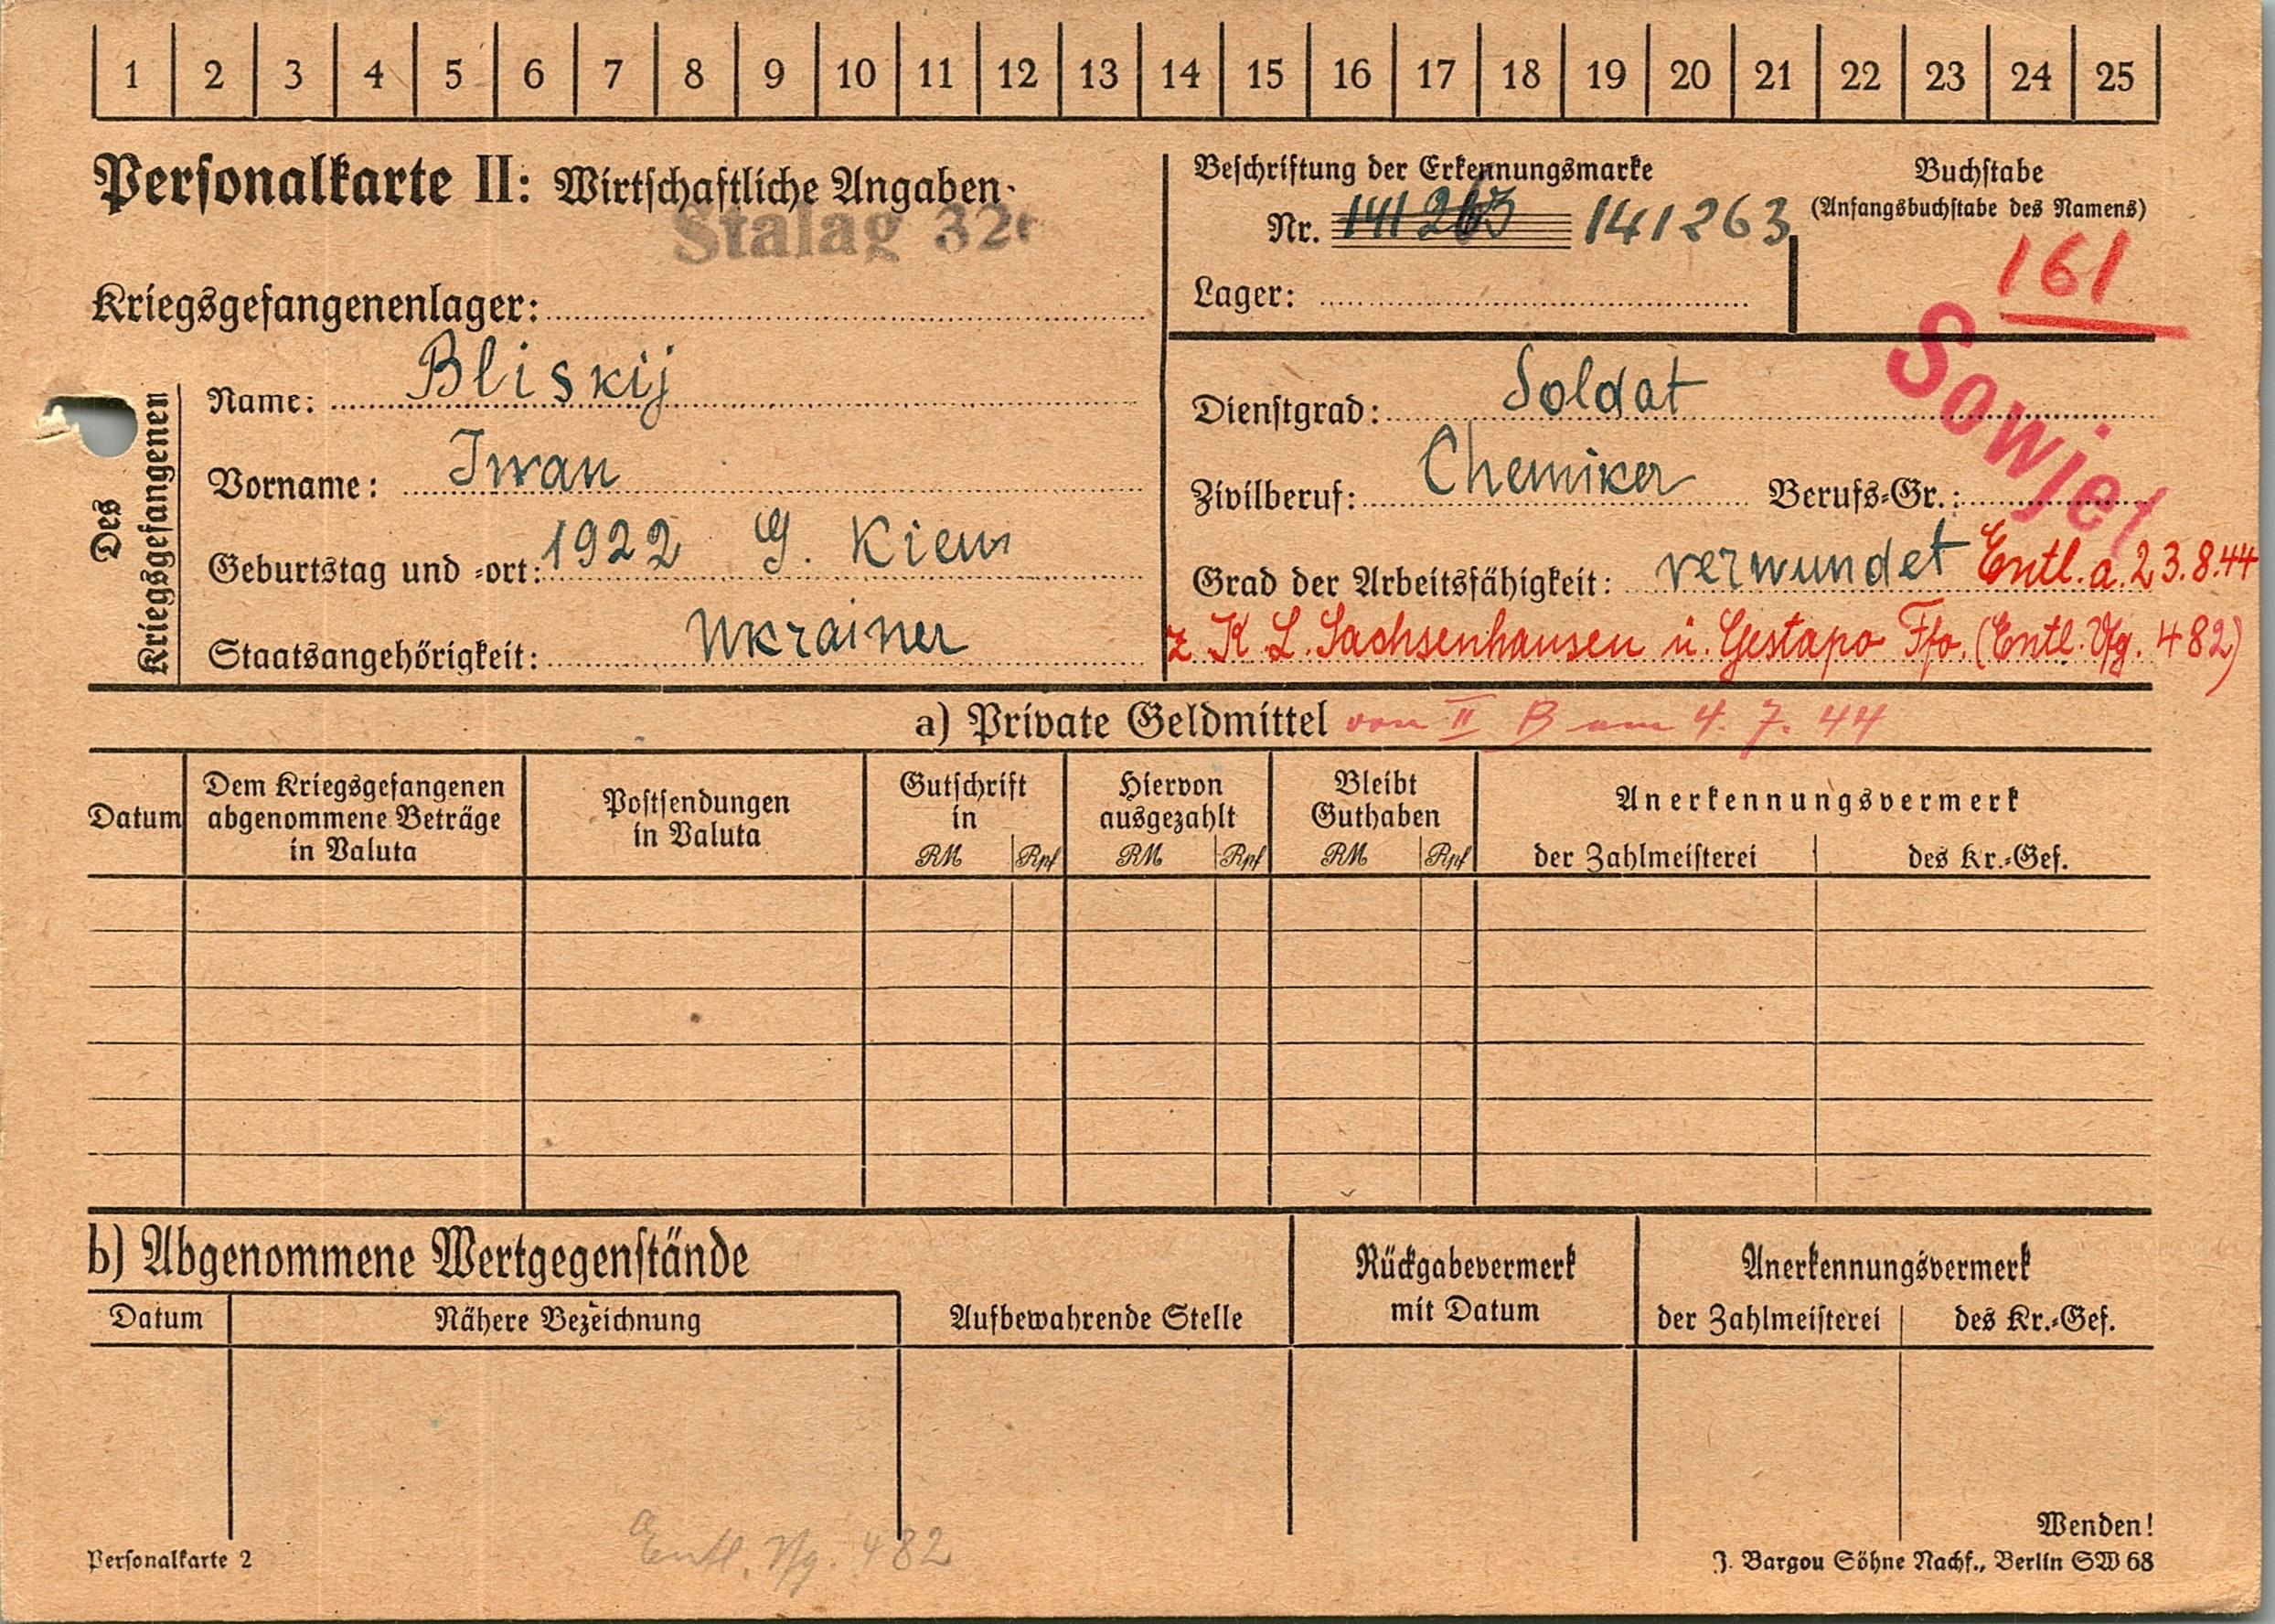 1 2 3 4 5 6 7 8 9 10 11 12 13 14 15 16 17 18 19 20 21 22 23 24 25
Personalkarte II: Wirtschaftliche Angaben
Stalag
Kriegsgefangenenlager:
Beschriftung der Erkennungsmarke
Nr. 141263 141263
Lager:
Buchstabe
(Anfangsbuchstabe des Namens)
161
Sowjet
Des Kriegsgefangenen
Name: Bliskij
Vorname: Iwan
Geburtstag und -ort: 1922 G. Kiew
Staatsangehörigkeit: Ukrainer
Dienstgrad: Soldat
Zivilberuf: Chemiker Berufs-Gr.:
Grad der Arbeitsfähigkeit: verwundet Entl. a. 23.8.44
z. K. L. Sachsenhausen ü. Gestapo Ffo. (Entl. Vfg. 482)
a) Private Geldmittel von II B am 4. 7. 44
Datum
Dem Kriegsgefangenen
abgenommene Beträge
in Valuta
Postsendungen
in Valuta
Gutschrift
in
RM Rpf
Hiervon
ausgezahlt
RM Rpf
Bleibt
Guthaben
RM Rpf
Anerkennungsvermerk
der Zahlmeisterei des Kr.-Gef.
b) Abgenommene Wertgegenstände
Datum Nähere Bezeichnung
Aufbewahrende Stelle
Rückgabevermerk
mit Datum
Anerkennungsvermerk
der Zahlmeisterei des Kr.-Gef.
Entl. Vfg. 482
Wenden!
Personalkarte 2
J. Bargou Söhne Nachf., Berlin SW 68